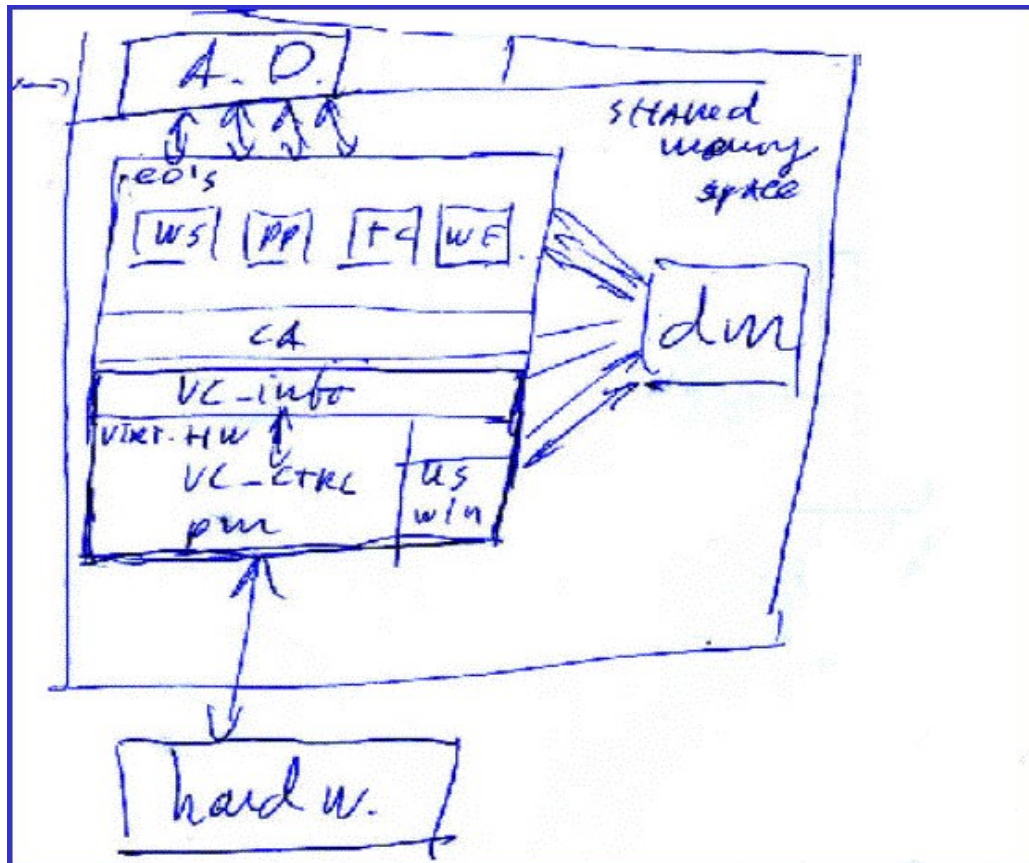 A. D.
SHAred
memory
space
EO's
WS PP TC WE
dm
CA
VC_info
virt. HW
VC_CTRL
pm
US
win
hard w.